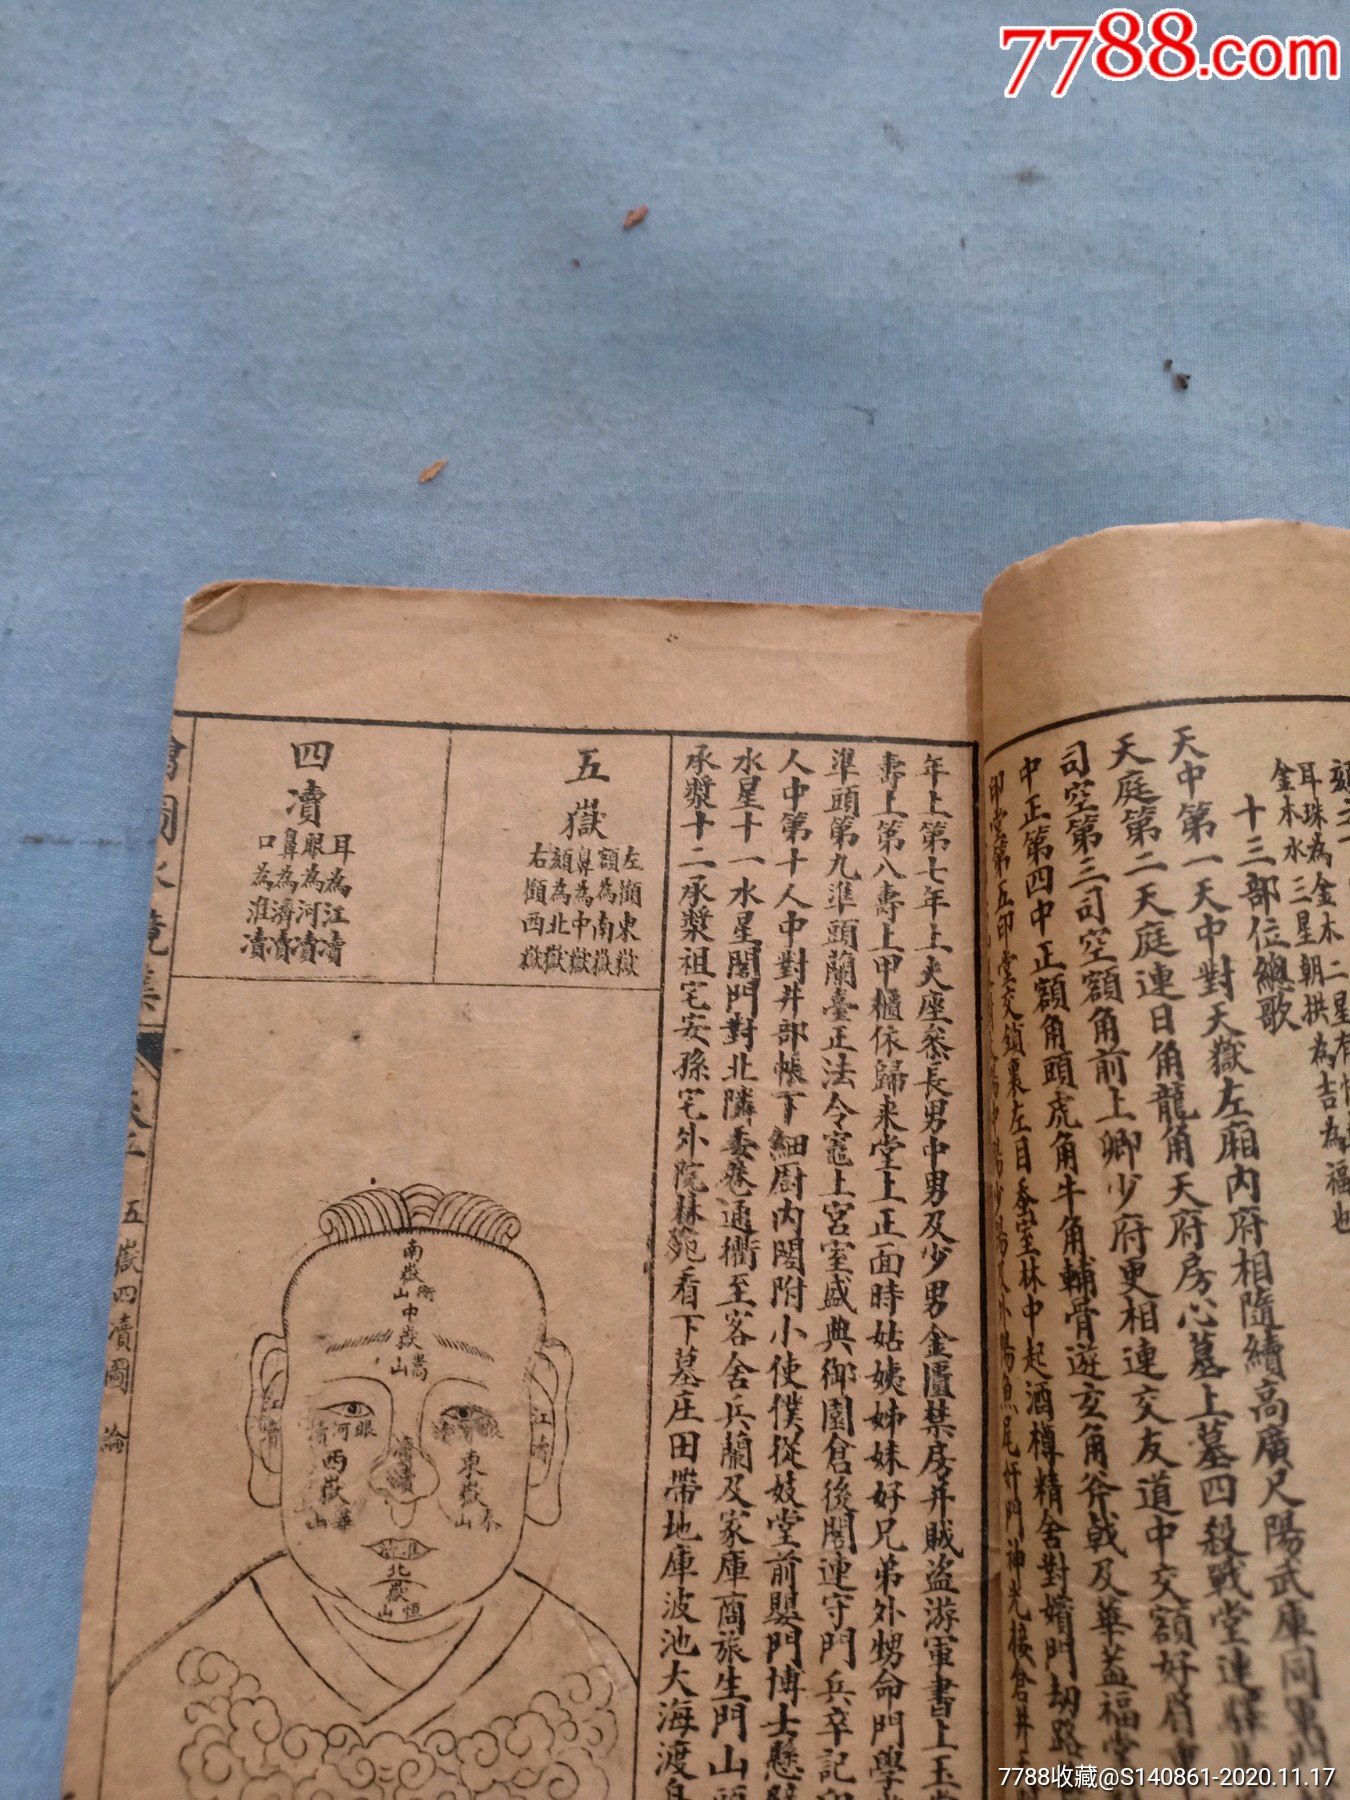 7788.com
耳珠為金木二星有
金木水三星朝拱為吉為福也
十三部位總歌
天中第一天中對天嶽左廂內府相隨續高廣尺陽武庫同軍門
天庭第二天庭連日角龍角天府房心墓上墓四殺戰堂連驛馬
司空第三司空額角前上卿少府更相連交友道中交額好眉
中正第四中正額角頭虎角牛角輔骨遊玄角斧戟及華蓋福堂
印堂第五印堂交鎖裏左目蚕室林中起酒樽精舍對嬪門劫路
年上第七年上夫座叅長男中男及少男金匱禁房并賊盜游軍書上玉堂
壽上第八壽上甲櫃依歸來堂上正面時姑姨姊妹好兄弟外甥命門學
準頭第九準頭蘭臺正法令竈上宮室盛典御園倉後閣連守門兵卒記印
人中第十人中對井部帳下細厨內閣附小使僕從妓堂前嬰門博士懸
水星十一水星閣門對北隣委巷通衢至客舍兵蘭及家庫商旅生門山頭
承漿十二承漿祖宅安孫宅外院林苑看下墓庄田帶地庫波池大海渡
五嶽
左顴東嶽
額為南嶽
鼻為中嶽
頦為北嶽
右顴西嶽
四瀆
耳為江瀆
眼為河瀆
鼻為濟瀆
口為淮瀆
南嶽衡山
中嶽嵩山
東嶽泰山
西嶽華山
北嶽恒山
眼河瀆
江瀆
江瀆
濟瀆
圖水鏡集
五嶽四瀆圖 論
7788收藏@S140861-2020.11.17